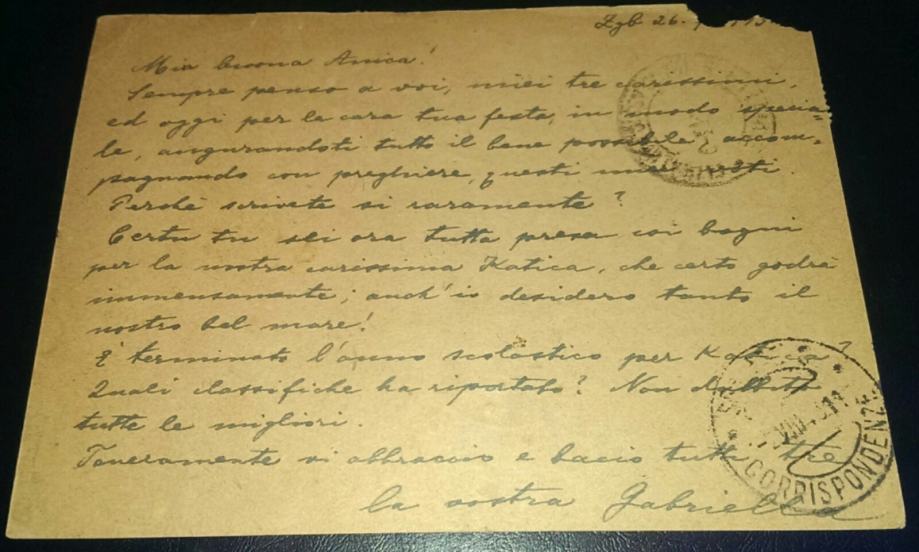 Zgb 26.
Mia buona Amica!
Sempre penso a voi, miei tre carissimi,
ed oggi per la cara tua festa, in modo specia=
le, augurandoti tutto il bene possibile, accom=
pagnando con preghiere, questi miei voti.
Perchè scrivete si raramente?
Certu tu sei ora tutta presa coi bagni
per la vostra carissima Katica, che certo godrà
immensamente; anch'io desidero tanto il
nostro bel mare!
E' terminato l'anno scolastico per Katica?
Quali classifiche ha riportato? Non dubito
tutte le migliori.
Teneramente vi abbraccio e bacio tutti tre
la vostra Gabriella
CORRISPONDENZE